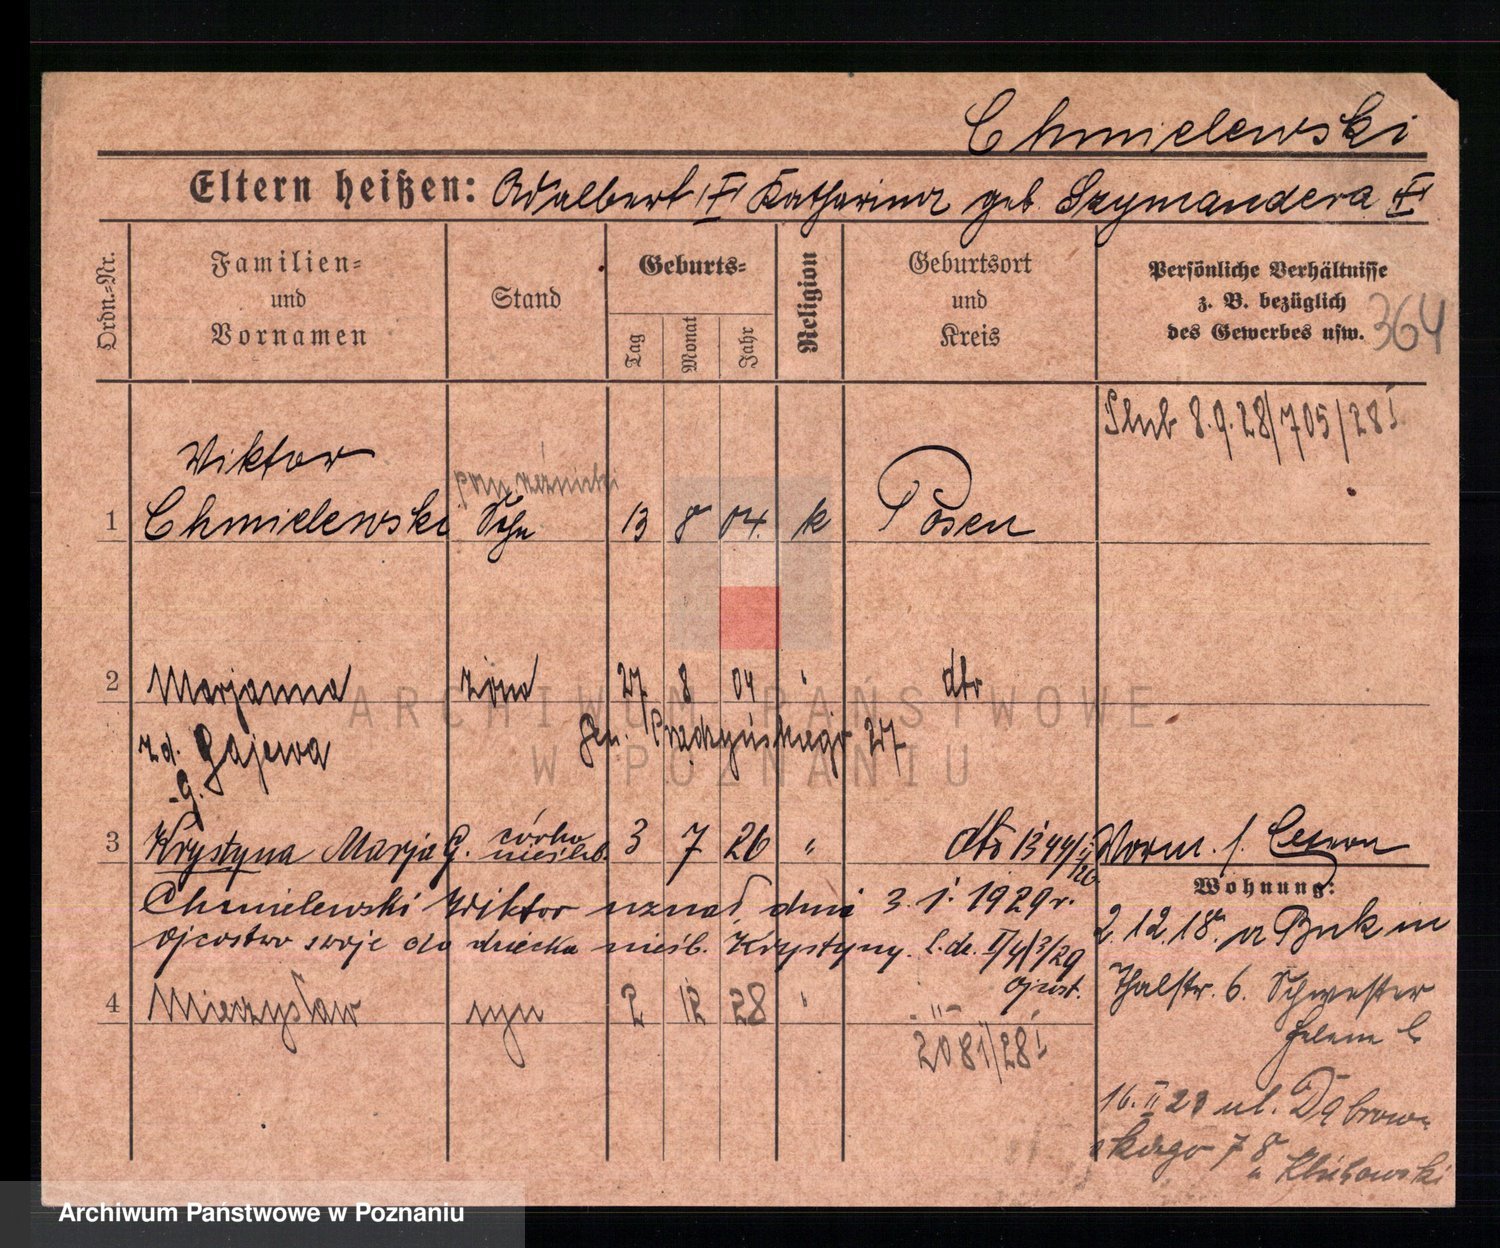 Chmielewski
Eltern heißen: Adalbert Katharina geb. Szymandera
Ordn.-Nr.
Familien-
und
Vornamen
Stand
Geburts-
Tag
Monat
Jahr
Religion
Geburtsort
und
Kreis
Persönliche Verhältnisse
z. B. bezüglich
des Gewerbes usw.
364
Ślub 8.9.28/705/28 I
Viktor
1 Chmielewski 13 8 04. k Posen
2 Marjanna żona 27 8 04 " dto
zd. Gajewa
gen. Prądzyńskiego 27
-G.
3 Krystyna Marja G. córka nieślub. 3 7 26 " dto 1344/
Chmielewski Wiktor uznał dnia 3. I. 1929 r.
ojcostwo swoje do dziecka nieśl. Krystyny.
Vorm. f.
Wohnung:
2.12.18.
Thalstr. 6. Schwester
Helene
4 Mieczysław syn 2 12 28 " - " -
2081/28 I
16. II 23 ul. Dąbrow-
skiego 78
ARCHIWUM PAŃSTWOWE
W POZNANIU
Archiwum Państwowe w Poznaniu